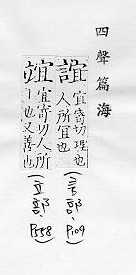 四聲篇海
誼
宜寄切理也
人所宜也
(言部 P109)
竩
宜寄切人所
也又善也
(立部 P558)